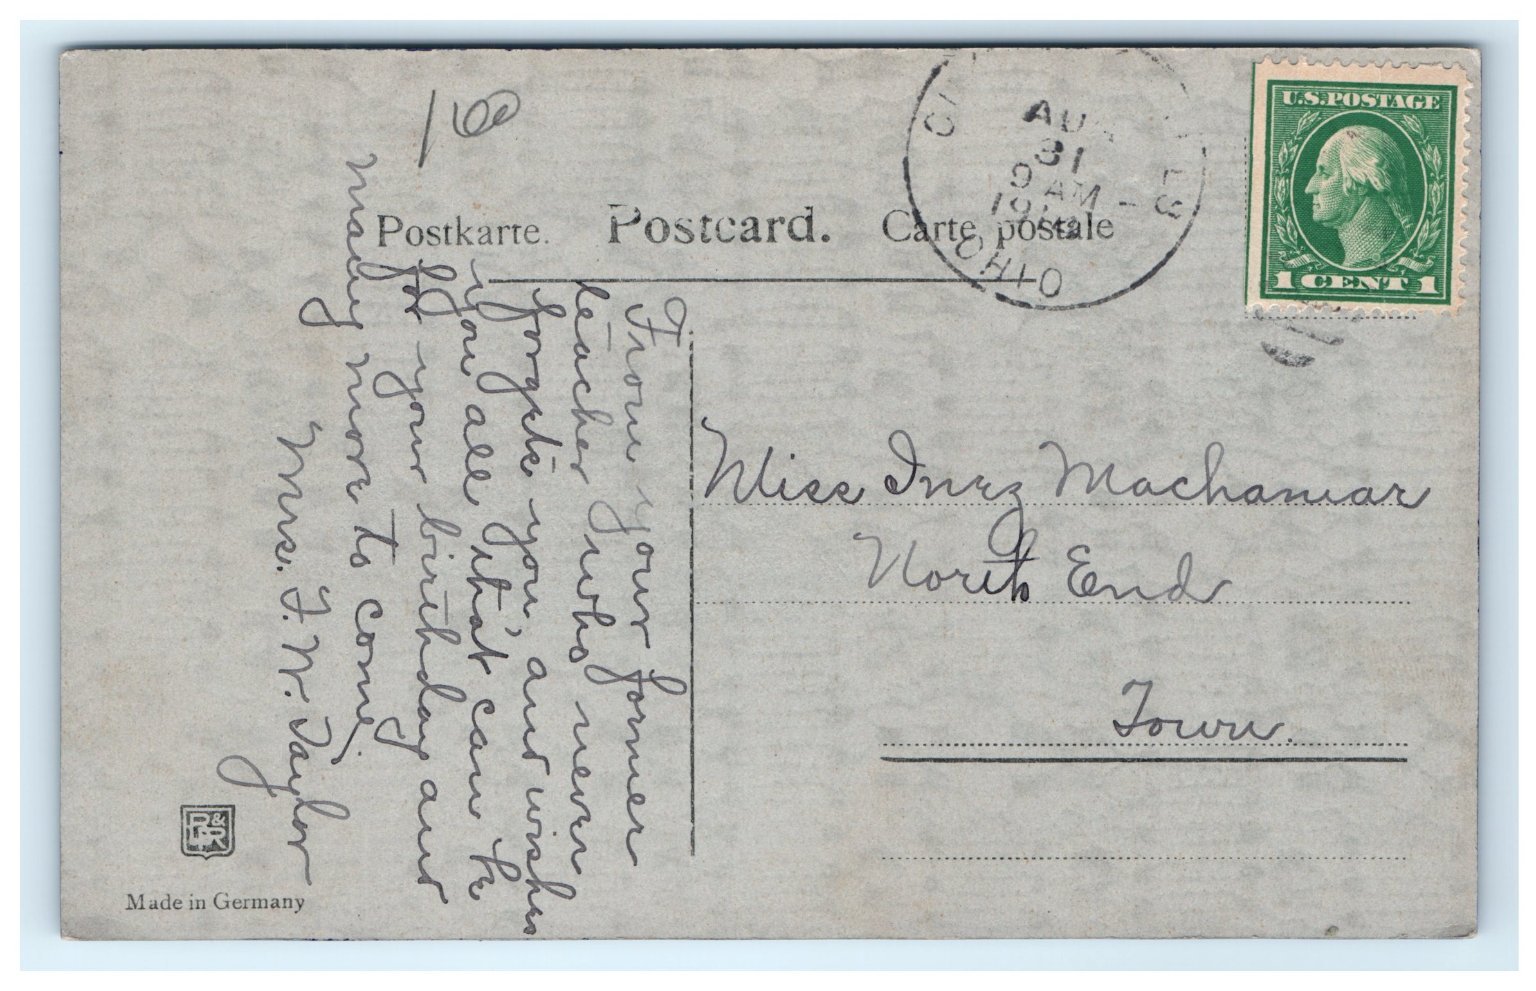 160
Postkarte. Postcard. Carte postale
AUG
31
9 AM
OHIO
U.S. POSTAGE
1 CENT 1
From your former
teacher who never
forgets you, and wishes
you all that can be
for your birthday and
many more to come,
Mrs. F. W. Taylor
Miss Inez Machamar
North End
Town.
Made in Germany